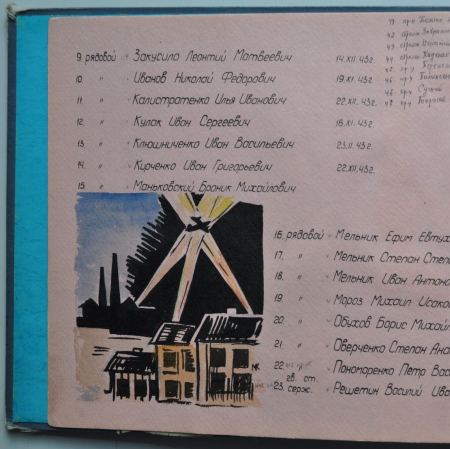 9. рядовой " Закусила Леонтий Матвеевич 14.XII.43г.
10. " " Иванов Николай Федорович 19.XI.43г.
11. " " Калистратенко Илья Иванович 22.XII.43г.
12. " " Кулак Иван Сергеевич 16.XI.43г.
13. " " Клюшниченко Иван Васильевич 23.11.43г.
14. " " Кирченко Иван Григорьевич 22.XII.43г.
15. " " Маньковский Броник Михайлович
16. рядовой " Мельник Ефим Евтух
17. " " Мельник Степан Степ
18. " " Мельник Иван Антон
19. " " Мороз Михаил Исак
20. " " Обухов Борис Михайл
21. " " Оверченко Степан Ана
22. " Пономаренко Петр Вас
гв. ст.
23. серж. " Решетин Василий Ива
МК